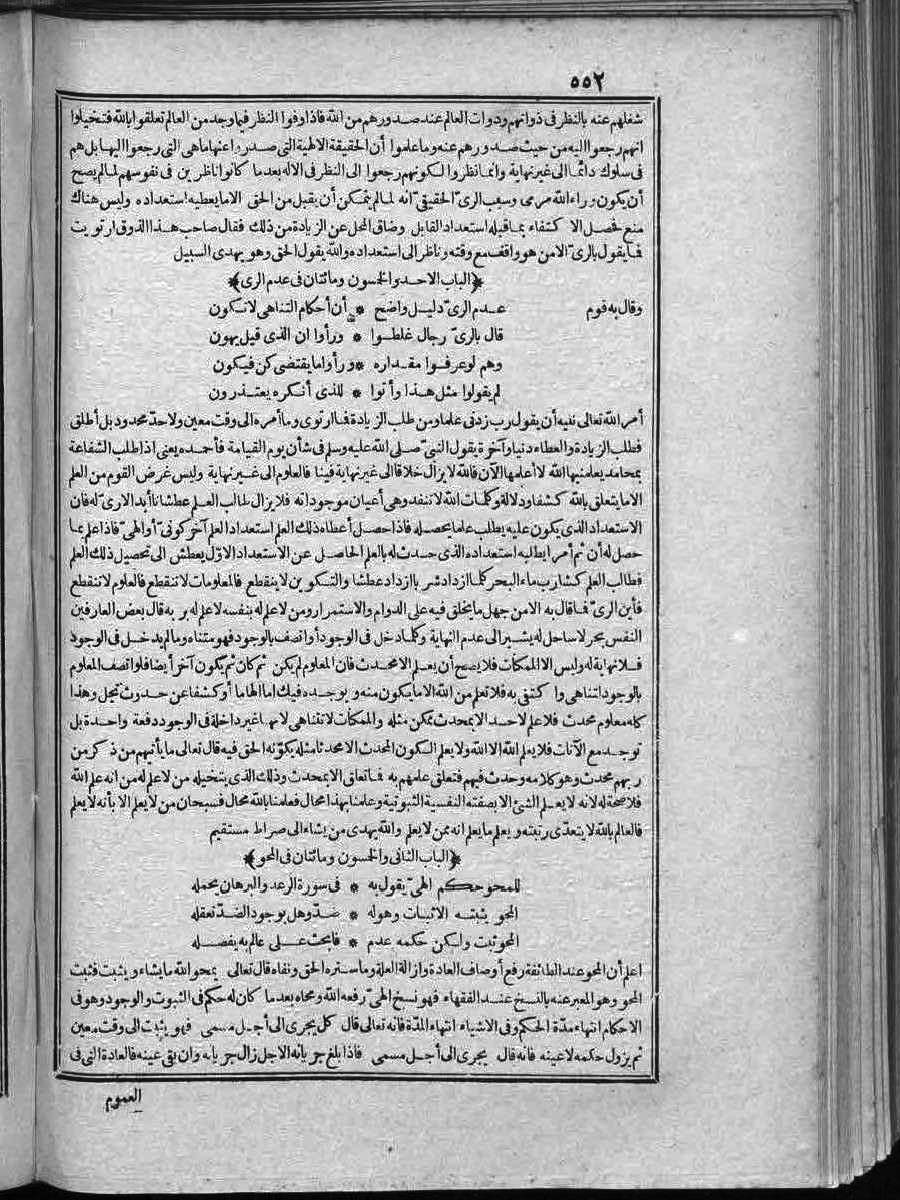 ٥٥٢
شغلهم عنه بالنظر فى ذواتهم وذوات العالم عند صدورهم من الله فاذا وفوا النظر فيما وجد من العالم تعلقوا بالله فتخيلوا
انهم رجعوا اليه من حيث صدورهم عنه وما علموا أن الحقيقة الالهية التى صدروا عنها ما هى التى رجعوا اليها بل هم
فى سلوك دائما الى غير نهاية وانما نظروا لكونهم رجعوا الى النظر فى الاله بعد ما كانوا ناظرين فى نفوسهم لما لم يصح
أن يكون وراء الله مرمى وسبب الرىّ الحقيقىّ انه لما لم يتمكن أن يقبل من الحق الا ما يعطيه استعداده وليس هناك
منع فحصل الا كتفاء بما قبله استعداد القابل وضاق المحل عن الزيادة من ذلك فقال صاحب هذا الذوق ارتويت
فما يقول بالرىّ الا من هو واقف مع وقته وناظر الى استعداده والله يقول الحق وهو يهدى السبيل
﴿الباب الاحد والخمسون ومائتان فى عدم الرى﴾
وقال به قوم عدم الرىّ دليل واضح * أن أحكام التناهى لا تكون
قال بالرىّ رجال غلطوا * ورأوا ان الذى قيل يهون
وهم لو عرفوا مقداره * ورأوا ما يقتضى كن فيكون
لم يقولوا مثل هذا وأتوا * للذى أنكره يعتذرون
أمر الله تعالى نبيه أن يقول رب زدنى علما ومن طلب الزيادة فما ارتوى وما أمره الى وقت معين ولا حدّ محدود بل أطلق
فطلب الزيادة والعطاء دنيا وآخرة يقول النبىّ صلى الله عليه وسلم فى شأن يوم القيامة فأحمده يعنى اذا طلب الشفاعة
بمحامد يعلمنيها الله لا أعلمها الآن فالله لا يزال خلاقا الى غير نهاية فينا فالعلوم الى غير نهاية وليس غرض القوم من العلم
الا ما يتعلق بالله كشفا ودلالة وكلمات الله لا تنفد وهى أعيان موجوداته فلا يزال طالب العلم عطشانا أبدا لا رىّ له فان
الاستعداد الذى يكون عليه يطلب علما يحصله فاذا حصل أعطاه ذلك العلم استعداد العلم آخر كونىّ أو الهىّ فاذا علم بما
حصل له أن ثم أمرا يطلبه استعداده الذى حدث له بالعلم الحاصل عن الاستعداد الاوّل يعطش الى تحصيل ذلك العلم
فطالب العلم كشارب ماء البحر كلما ازداد شربا ازداد عطشا والتكوين لا ينقطع فالمعلومات لا تنقطع فالعلوم لا تنقطع
فأين الرىّ فما قال به الا من جهل ما يخلق فيه على الدوام والاستمرار ومن لا علم له بنفسه لا علم له بربه قال بعض العارفين
النفس بحر لا ساحل له يشير الى عدم النهاية وكلما دخل فى الوجود أو اتصف بالوجود فهو متناه وما لم يدخل فى الوجود
فلا نهاية له وليس الا الممكنات فلا يصح أن يعلم الا محدث فان المعلوم لم يكن ثم كان ثم يكون آخر أيضا فلو اتصف المعلوم
بالوجود لتناهى واكتفى به فلا تعلم من الله الا ما يكون منه ويوجده فيك اما الهاما أو كشفا عن حدوث تجل وهذا
كله معلوم محدث فلا علم لاحد الا بمحدث ممكن مثله والممكنات لا تتناهى لانها غير داخلة فى الوجود دفعة واحدة بل
توجد مع الآنات فلا يعلم الله الا الله ولا يعلم الكون المحدث الا محدثا مثله يكوّنه الحق فيه قال تعالى ما يأتيهم من ذكر من
ربهم محدث وهو كلامه وحدث فيهم فتعلق علمهم به فما تعلق الا بمحدث وذلك الذى يتخيله من لا علم له من انه علم الله
فلا صحة له لانه لا يعلم الشئ الا بصفته النفسية الثبوتية وعلمنا بهذا محال فعلمنا بالله محال فسبحان من لا يعلم الا بأنه لا يعلم
فالعالم بالله لا يتعدّى رتبته ويعلم ما يعلم انه ممن لا يعلم والله يهدى من يشاء الى صراط مستقيم
﴿الباب الثانى والخمسون ومائتان فى المحو﴾
للمحو حكم الهىّ يقول به * فى سورة الرعد والبرهان يحمله
المحو يثبته الاثبات وهو له * ضدّ وهل بوجود الضدّ تعقله
المحو ثبت ولكن حكمه عدم * فابحث على عالم به يفصله
اعلم أن المحو عند الطائفة رفع أوصاف العادة وازالة العلة وما ستره الحق ونفاه قال تعالى يمحو الله ما يشاء ويثبت فثبت
المحو وهو المعبر عنه بالنسخ عند الفقهاء فهو نسخ الهىّ رفعه الله ومحاه بعد ما كان له حكم فى الثبوت والوجود وهو فى
الاحكام انتهاء مدّة الحكم وفى الاشياء انتهاء المدّة فانه تعالى قال كل يجرى الى أجل مسمى فهو يثبت الى وقت معين
ثم يزول حكمه لا عينه فانه قال يجرى الى أجل مسمى فاذا بلغ جريانه الاجل زال جريانه وان بقى عينه فالعادة التى فى
العموم